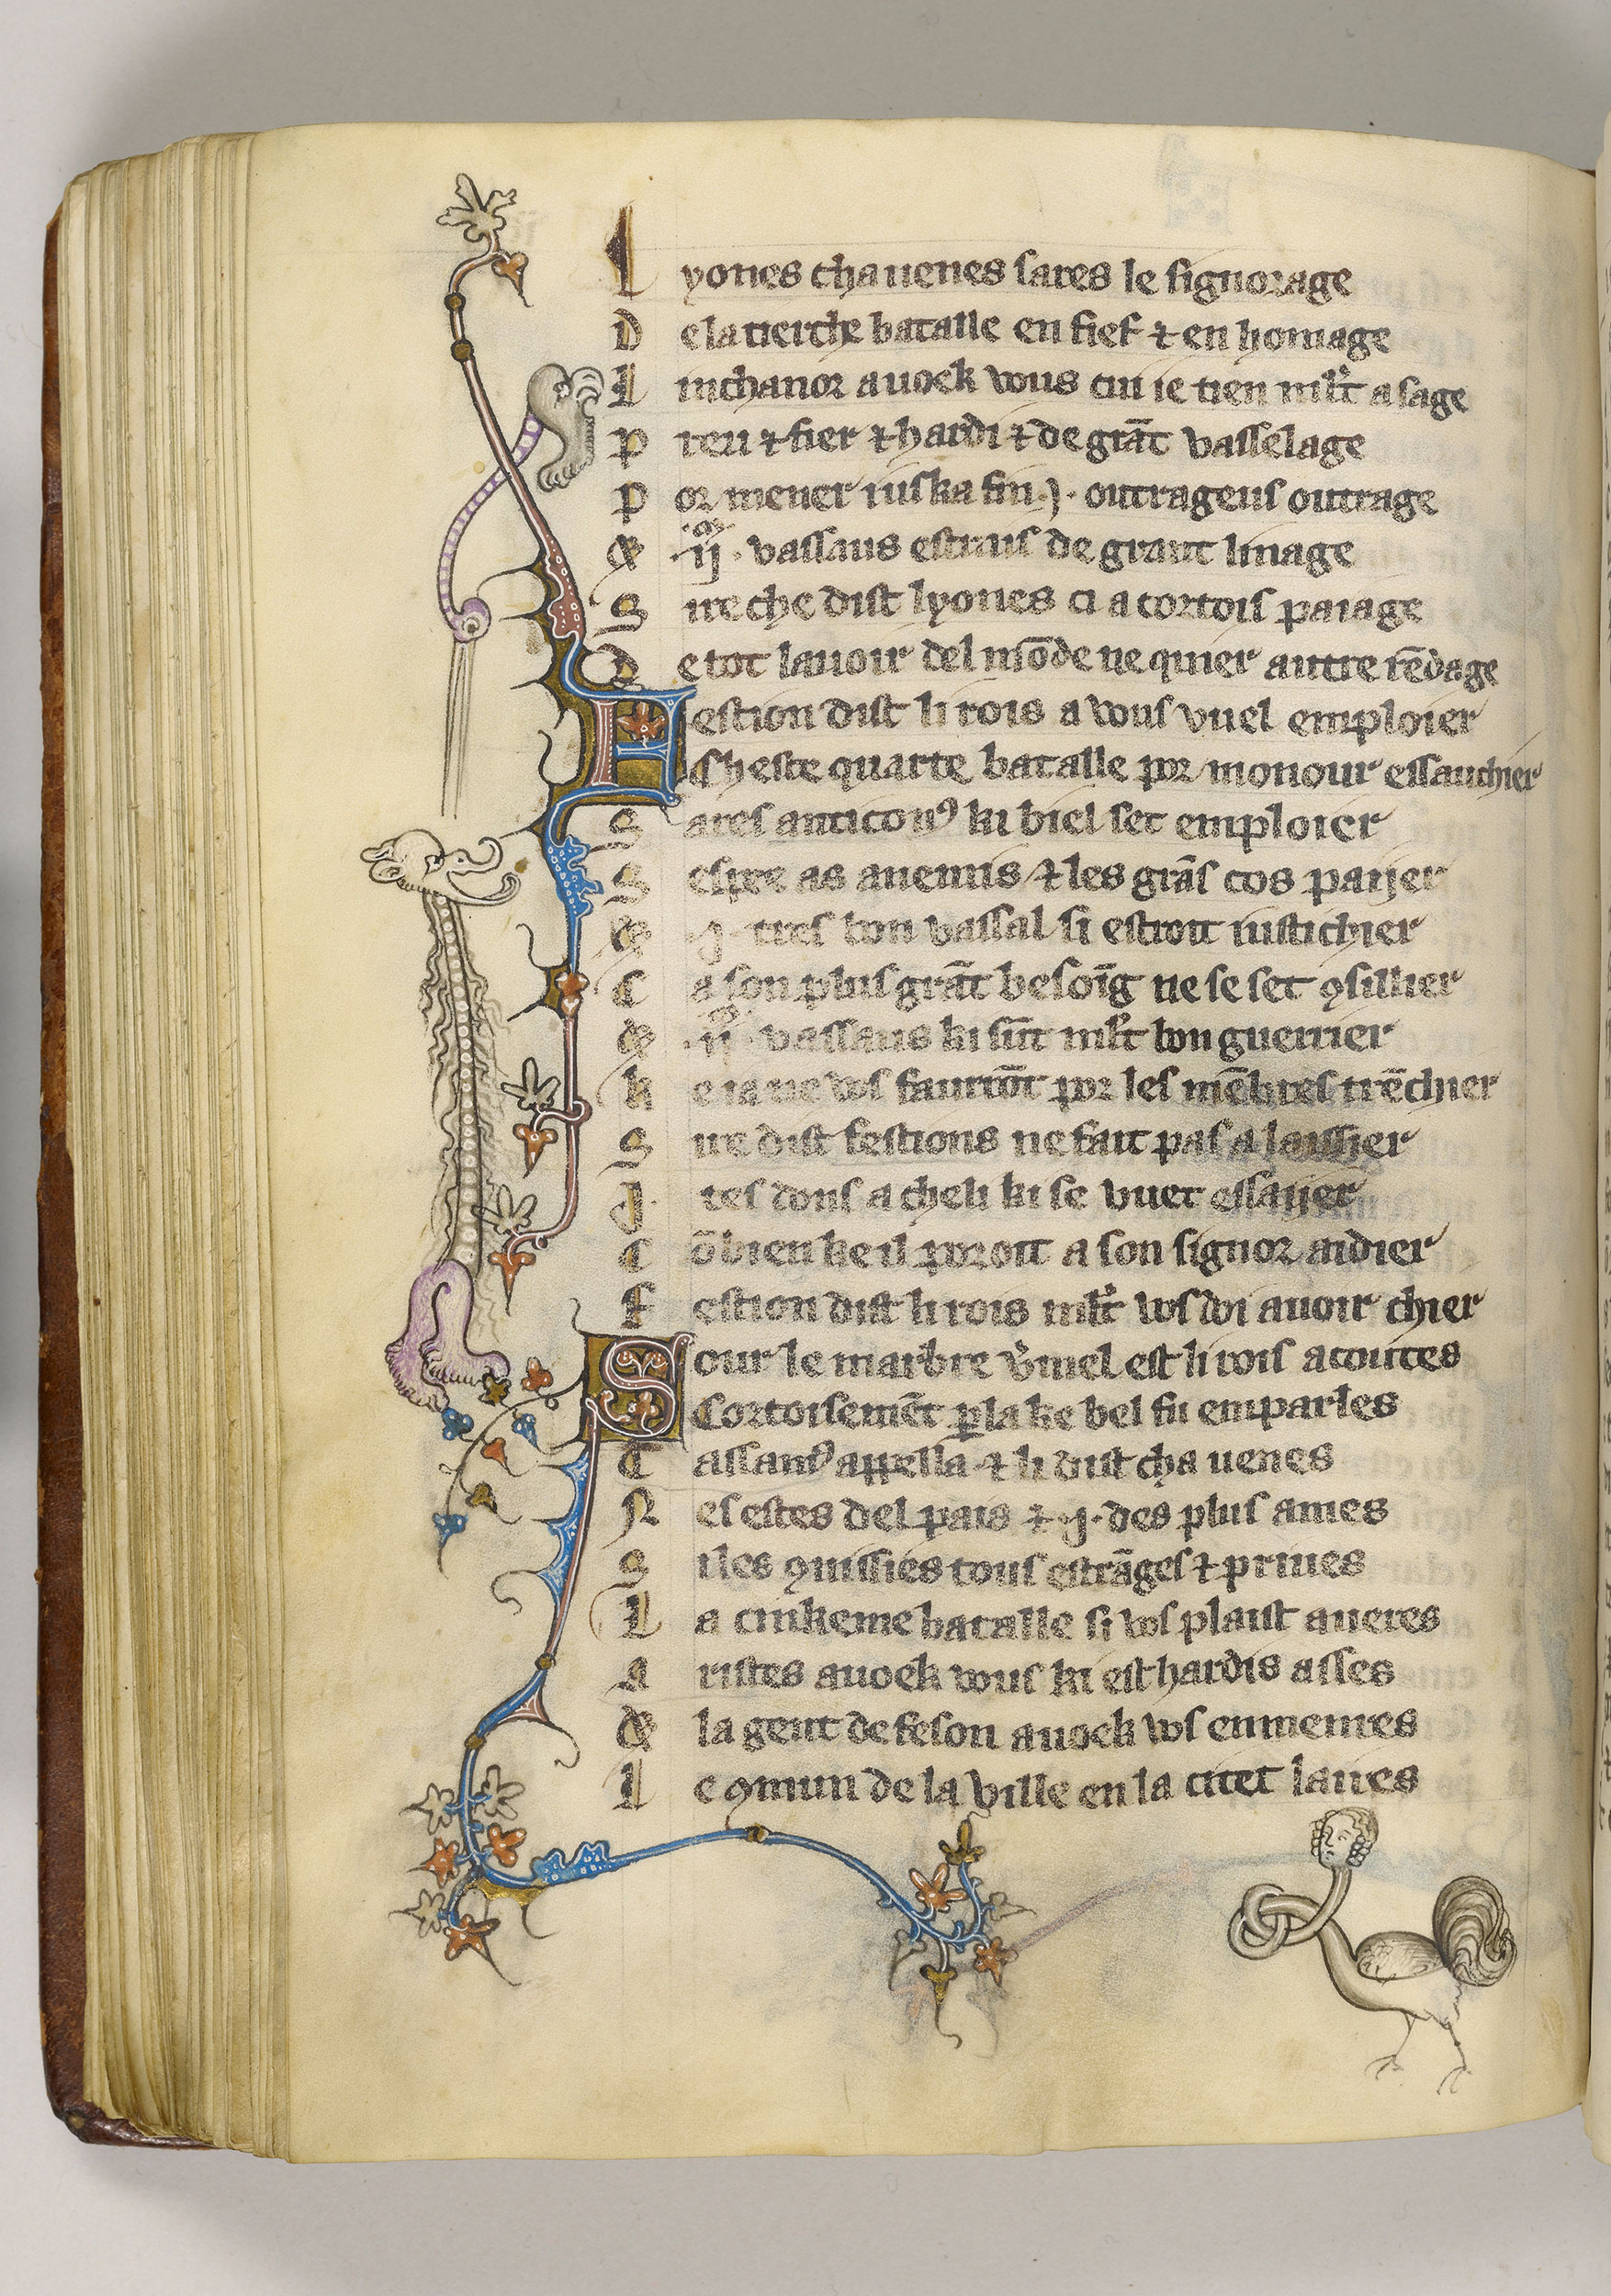 Lyones cha uenes sares le signorage
De la tierche batalle en fief ⁊ en homage
Linchanor auoek vous cui ie tien ml't a sage
Preu ⁊ fier ⁊ hardi ⁊ de grāt vasselage
Por mener iuska fin .j. outrageus outrage
Et .iiij. vassaus estrais de grant linage
Sire che dist lyones ci a cortois paiage
De tot lauoir del mōde ne quier autre rēdage
Festion dist li rois a vous vuel emploier
Cheste quarte batalle por monour essauchier
Sares anticonꝰ ki biel set emploier
Se lixe as anemis ⁊ les grās cos paijer
Et .j. tres bon vassal si estroit iustichier
Ca son plus grāt besoīg ne se set ꝯsillier
Et .iiij. vassaus ki sūt ml't bon guerrier
Ke ia ne vos faurrōt por les mēbres trēchier
Sire dist festions ne fait pas a laissier
Ites dons a cheli ki se vuet essaijer
Cōbien ke il porroit a son signor aidier
Festion dist li rois ml't vos doi auoir chier
Sour le marbre v'mel est li rois acoutes
Cortoisemēt ꝑla ke bel fu emparles
Cassandꝰ appella ⁊ li dist cha uenes
Nes estes del pais ⁊ .j. des plus ames
Siles ꝯnissies tous estrāges ⁊ priues
La cinkeme batalle si vos plaist aueres
Aristes auoek vous ki est hardis asses
Et la gent de feson auoek vos enmenres
Le ꝯmun de la ville en la citet laires